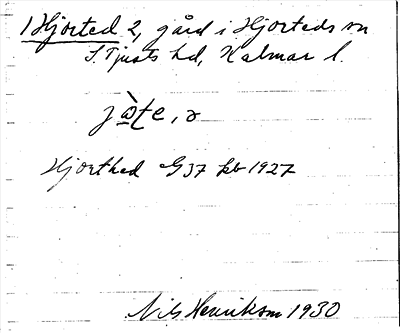 1 Hjorted 2, gård i Hjorteds sn
S. Tjusts hd, Kalmar l.
Hjorthed G 37 kb 1927
Nils Henrikson 1930